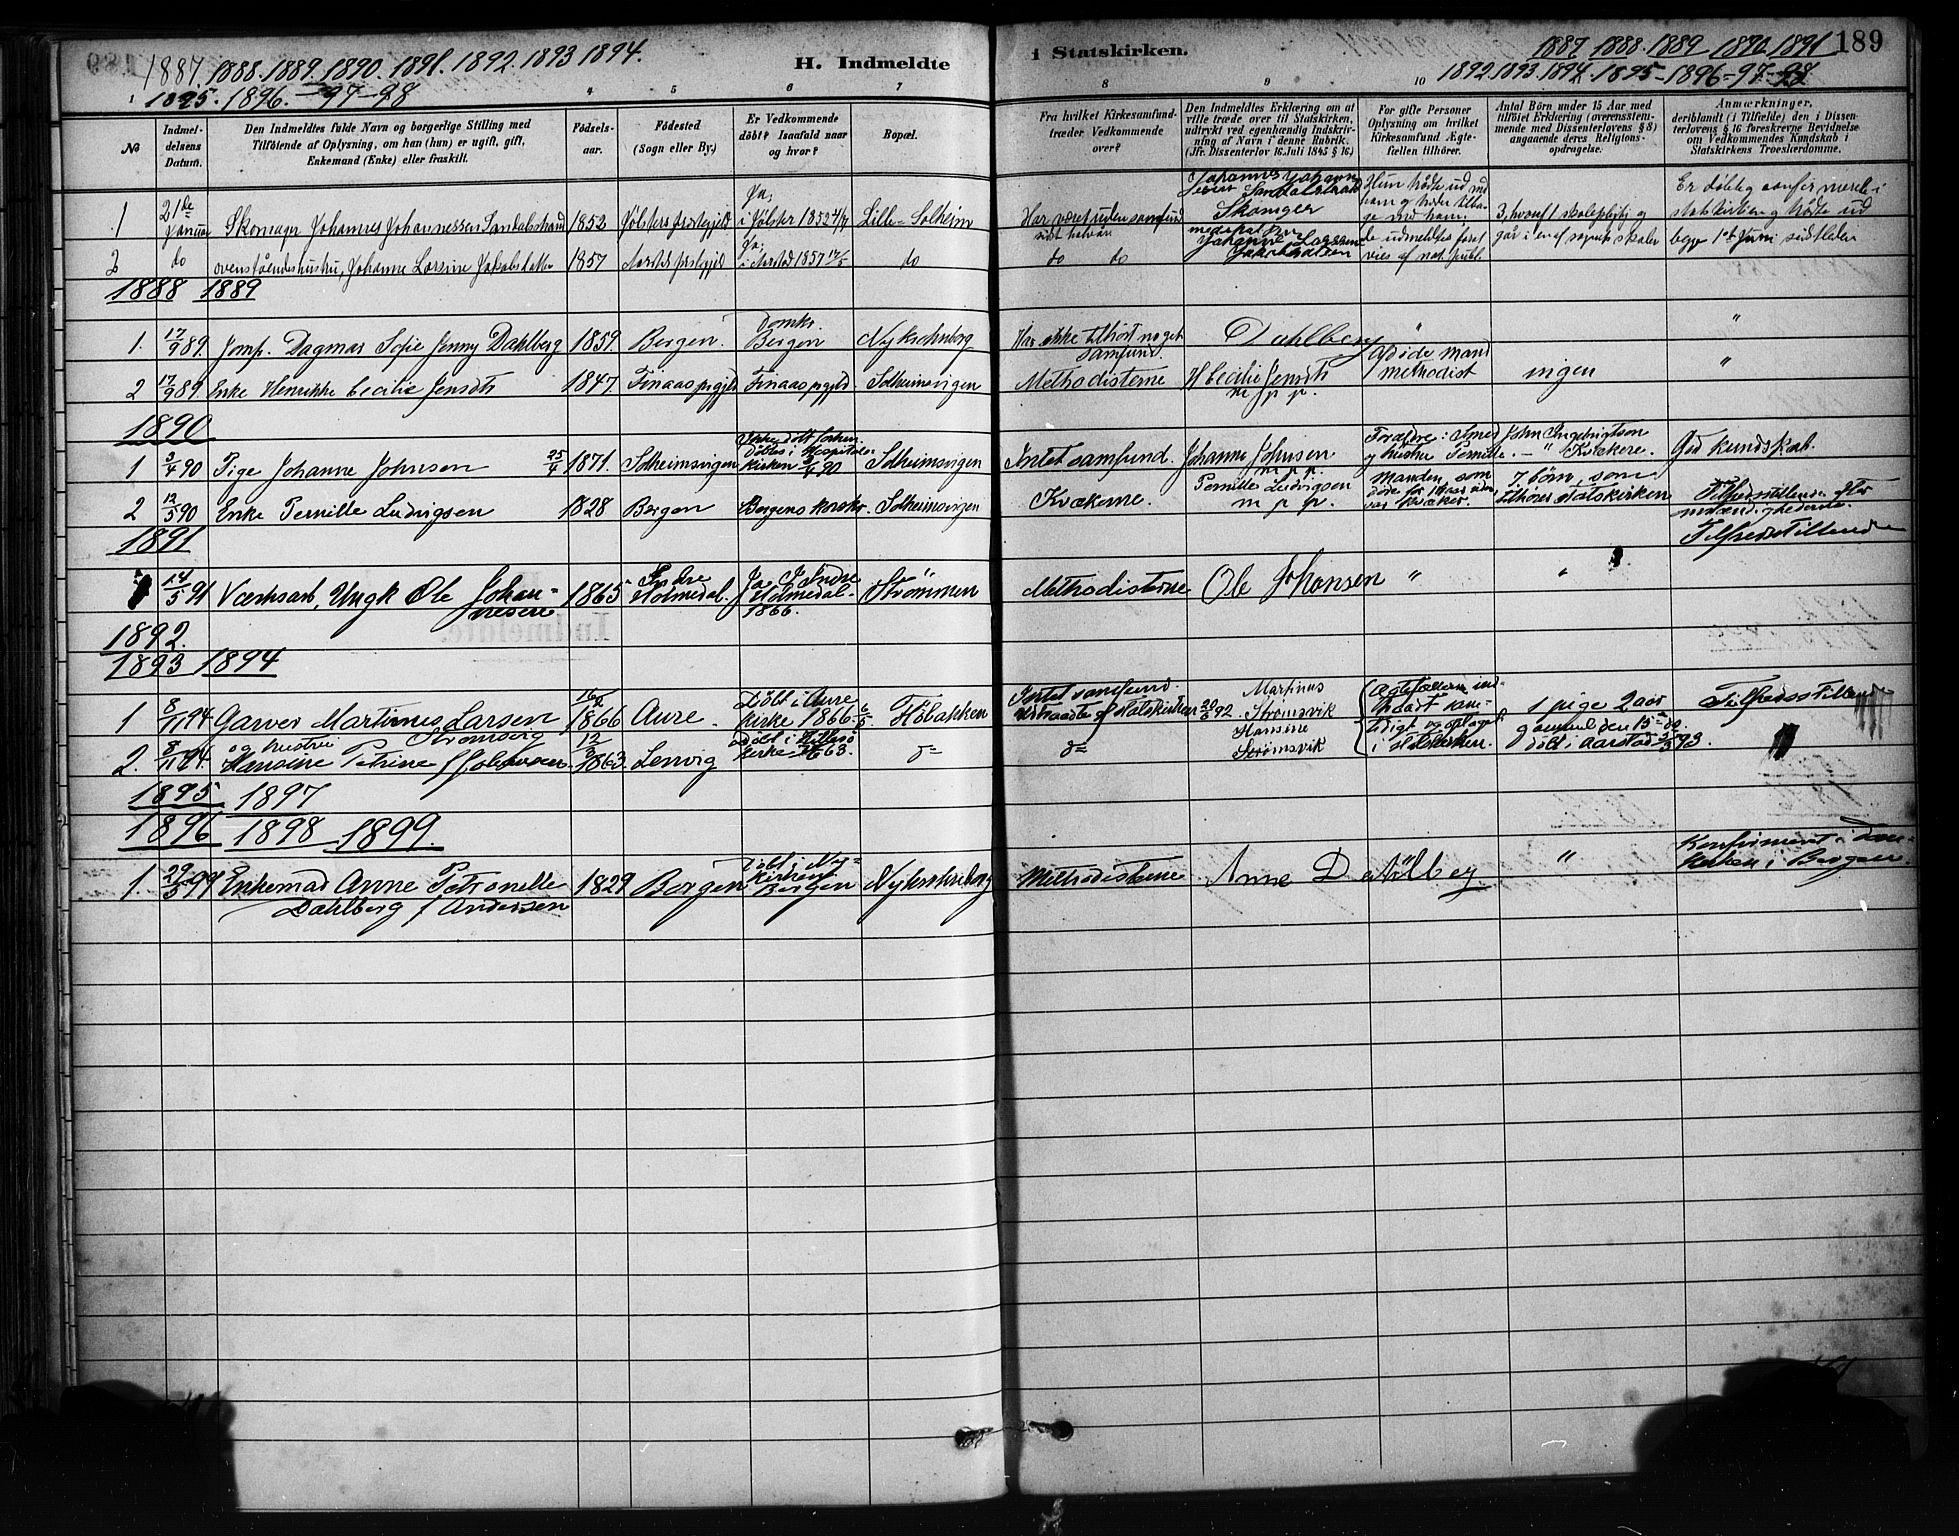 1887. 1888. 1889. 1890. 1891. 1892. 1893 1894.
1895. 1896. -97-98
H. Indmeldte
i Statskirken.
1887 1888. 1889 1890 1891
1892. 1893. 1894. 1895-1896-97-98
189
1 4 5 6 7 8 9 10
No
Indmel-
delsens
Datum.
Den Indmeldtes fulde Navn og borgerlige Stilling med
Tilföiende af Oplysning, om han (hun) er ugift, gift,
Enkemand (Enke) eller fraskilt.
Födsels-
aar.
Födested
(Sogn eller By.)
Er Vedkommende
döbt? Isaafald naar
og hvor?
Bopæl.
Fra hvilket Kirkesamfund-
træder Vedkommende
over?
Den Indmeldtes Erklæring om at
ville træde over til Statskirken,
udtrykt ved egenhændig Indskriv-
ning af Navn i denne Rubrik.
(Jfr. Dissenterlov 16. Juli 1845 § 16.)
For gifte Personer
Oplysning om hvilket
Kirkesamfund Ægte-
fællen tilhörer.
Antal Börn under 15 Aar med
tilföiet Erklæring (overensstem-
mende med Dissenterlovens § 8)
angaaende deres Religions-
opdragelse.
Anmærkninger,
deriblandt (i Tilfælde) den i Dissen-
terlovens § 16 foreskrevne Bevidnelse
om Vedkommendes Kundskab i
Statskirkens Troeslærdomme.
1 21de Januar Skomager Johannes Johannessen Sandalstrand 1852 Jølsters præstegjeld Ja, i Jølster 1852 4/4 Lille-Solheim Har været uden samfund sidst halvår
Johannes Johann
Sandalstrand
Skomager
Hun trådte ud med
ham og træder tilba-
ge med ham
3, hvoraf 1 skolepligtig og
går i en af sognets skoler
Er døbt og confirmeret i
statskirken og trådte ud
begge 1st Juni sidstleden
2 do ovenståendes hustru, Johanne Larsine Jakobsdatter 1857 Ja, i Aarstad 1857 do do do
med påholden pen
1888 1889
1. 17/9 89. Jomf. Dagmar Sofie Jenny Dahlberg 1859. Bergen. Domkr. Bergen Nykronborg Har ikke tilhört noget Samfund. Dahlberg " "
2 17/9 89. Enke Henrikke Cecilie Jensdts 1847. Finaas prgjeld Finaas prgjeld. Solheimsvigen Methodisterne H Cecilie Jensdts m p p. Afdöde mand methodist ingen "
1890
1 3/4 90 Pige Johanne Johnsen 25/4 1871. Solheimsvigen Döbtes i Hospitals-kirken 3/4 90 Solheimsvigen Intet samfund. Johanne Johnsen m p p. Forældre: Smed John Ingebrigtson og hustru Pernille. - " Kvækere. God kundskab.
2 12/5 90 Enke Pernille Ludvigsen 1828 Bergen Bergens korskr. Solheimsvigen Kvækerne. Pernille Ludvigsen m p p. Manden, som døde for 1 Aar siden, var kvæker. 7 börn, som tilhörer statskirken Tilfredsstillende efter omstændighederne.
1891
Tilfredsstillende
1 14/5 91 Værksarb. Ungk Ole Johan-nesen 1865 Indre Holmedal. Ja I Indre Holmedal 1866. Strömmen Methodisterne Ole Johansen " "
1892.
1893 1894
1 8/11 94 Garver Martinus Larsen Strömsvig 16/2 1866 Aure. Döbt i Aure kirke 1866 6/5 Höbakken Intet samfund. udtraadte af statskirken 20/5 92 Martinus Strømsvik
{Ægtefællerne ind-
traadt sam-
tidigt og optaget
i statskirken.
1 pige 2 aar
gammel den 15de do.
döbt i Aarstad 93.
Tilfredsstillende
2. 8/11 94 og hustru Hansine Petrine f Johnsen 12/3 1863. Lenvig Döbt i Hillesö kirke 63. do do Hansine Strømsvik
1895 1897
1896 1898 1899.
1. 29/5 99 Enkemad. Anne Petronelle Dahlberg f Andersen 1829 Bergen Döbt i Ny-kirken Bergen Nykronborg Methodisterne Anne Dahlberg " Konfirmeret i Dom-kirken i Bergen.